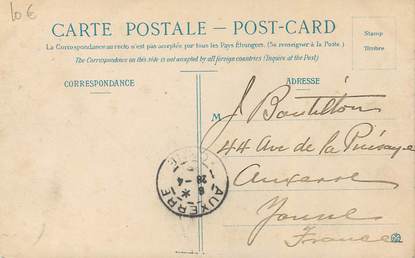 10€
CARTE POSTALE – POST-CARD
La Correspondance au recto n'est pas acceptée par tous les Pays Étrangers. (Se renseigner à la Poste)
The Correspondence on this side is not accepted by all foreign countries (Inquire at the Post)
Stamp
Timbre
CORRESPONDANCE
ADRESSE
M J. Boutilton
44 Av de la Puisaye
Auxerre
Yonne
France
8
28 - 4
AUXERRE